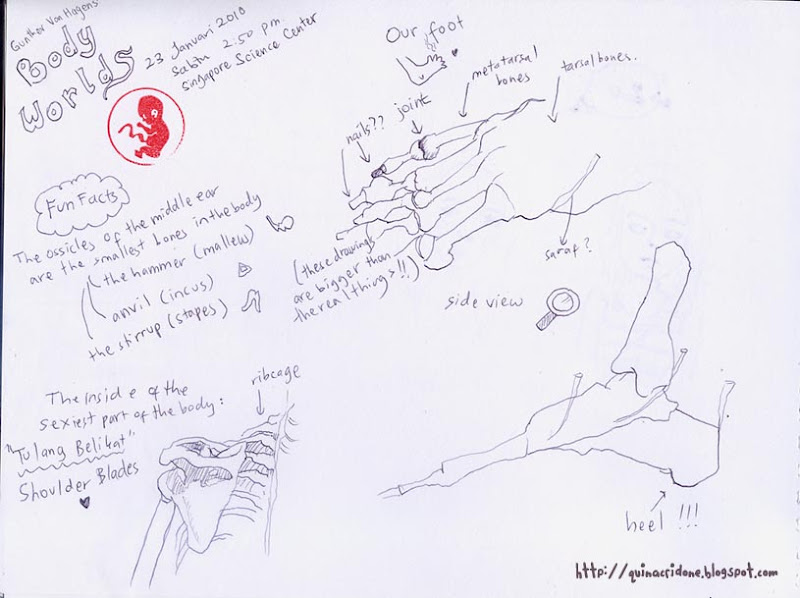 Gunther Von Hagens
Body
Worlds
23 Januari 2010
Sabtu 2.50 pm.
Singapore Science Center
Fun Facts
The ossicles of the middle ear
are the smallest bones in the body
the hammer (malleus)
anvil (incus)
the stirrup (stapes)
The inside of the
sexiest part of the body:
"Tulang Belikat"
Shoulder Blades
ribcage
Our foot
nails??
joint
metatarsal
bones
tarsal bones.
saraf?
(these drawings
are bigger than
the real things!!)
side view
heel !!!
http://quinacridone.blogspot.com